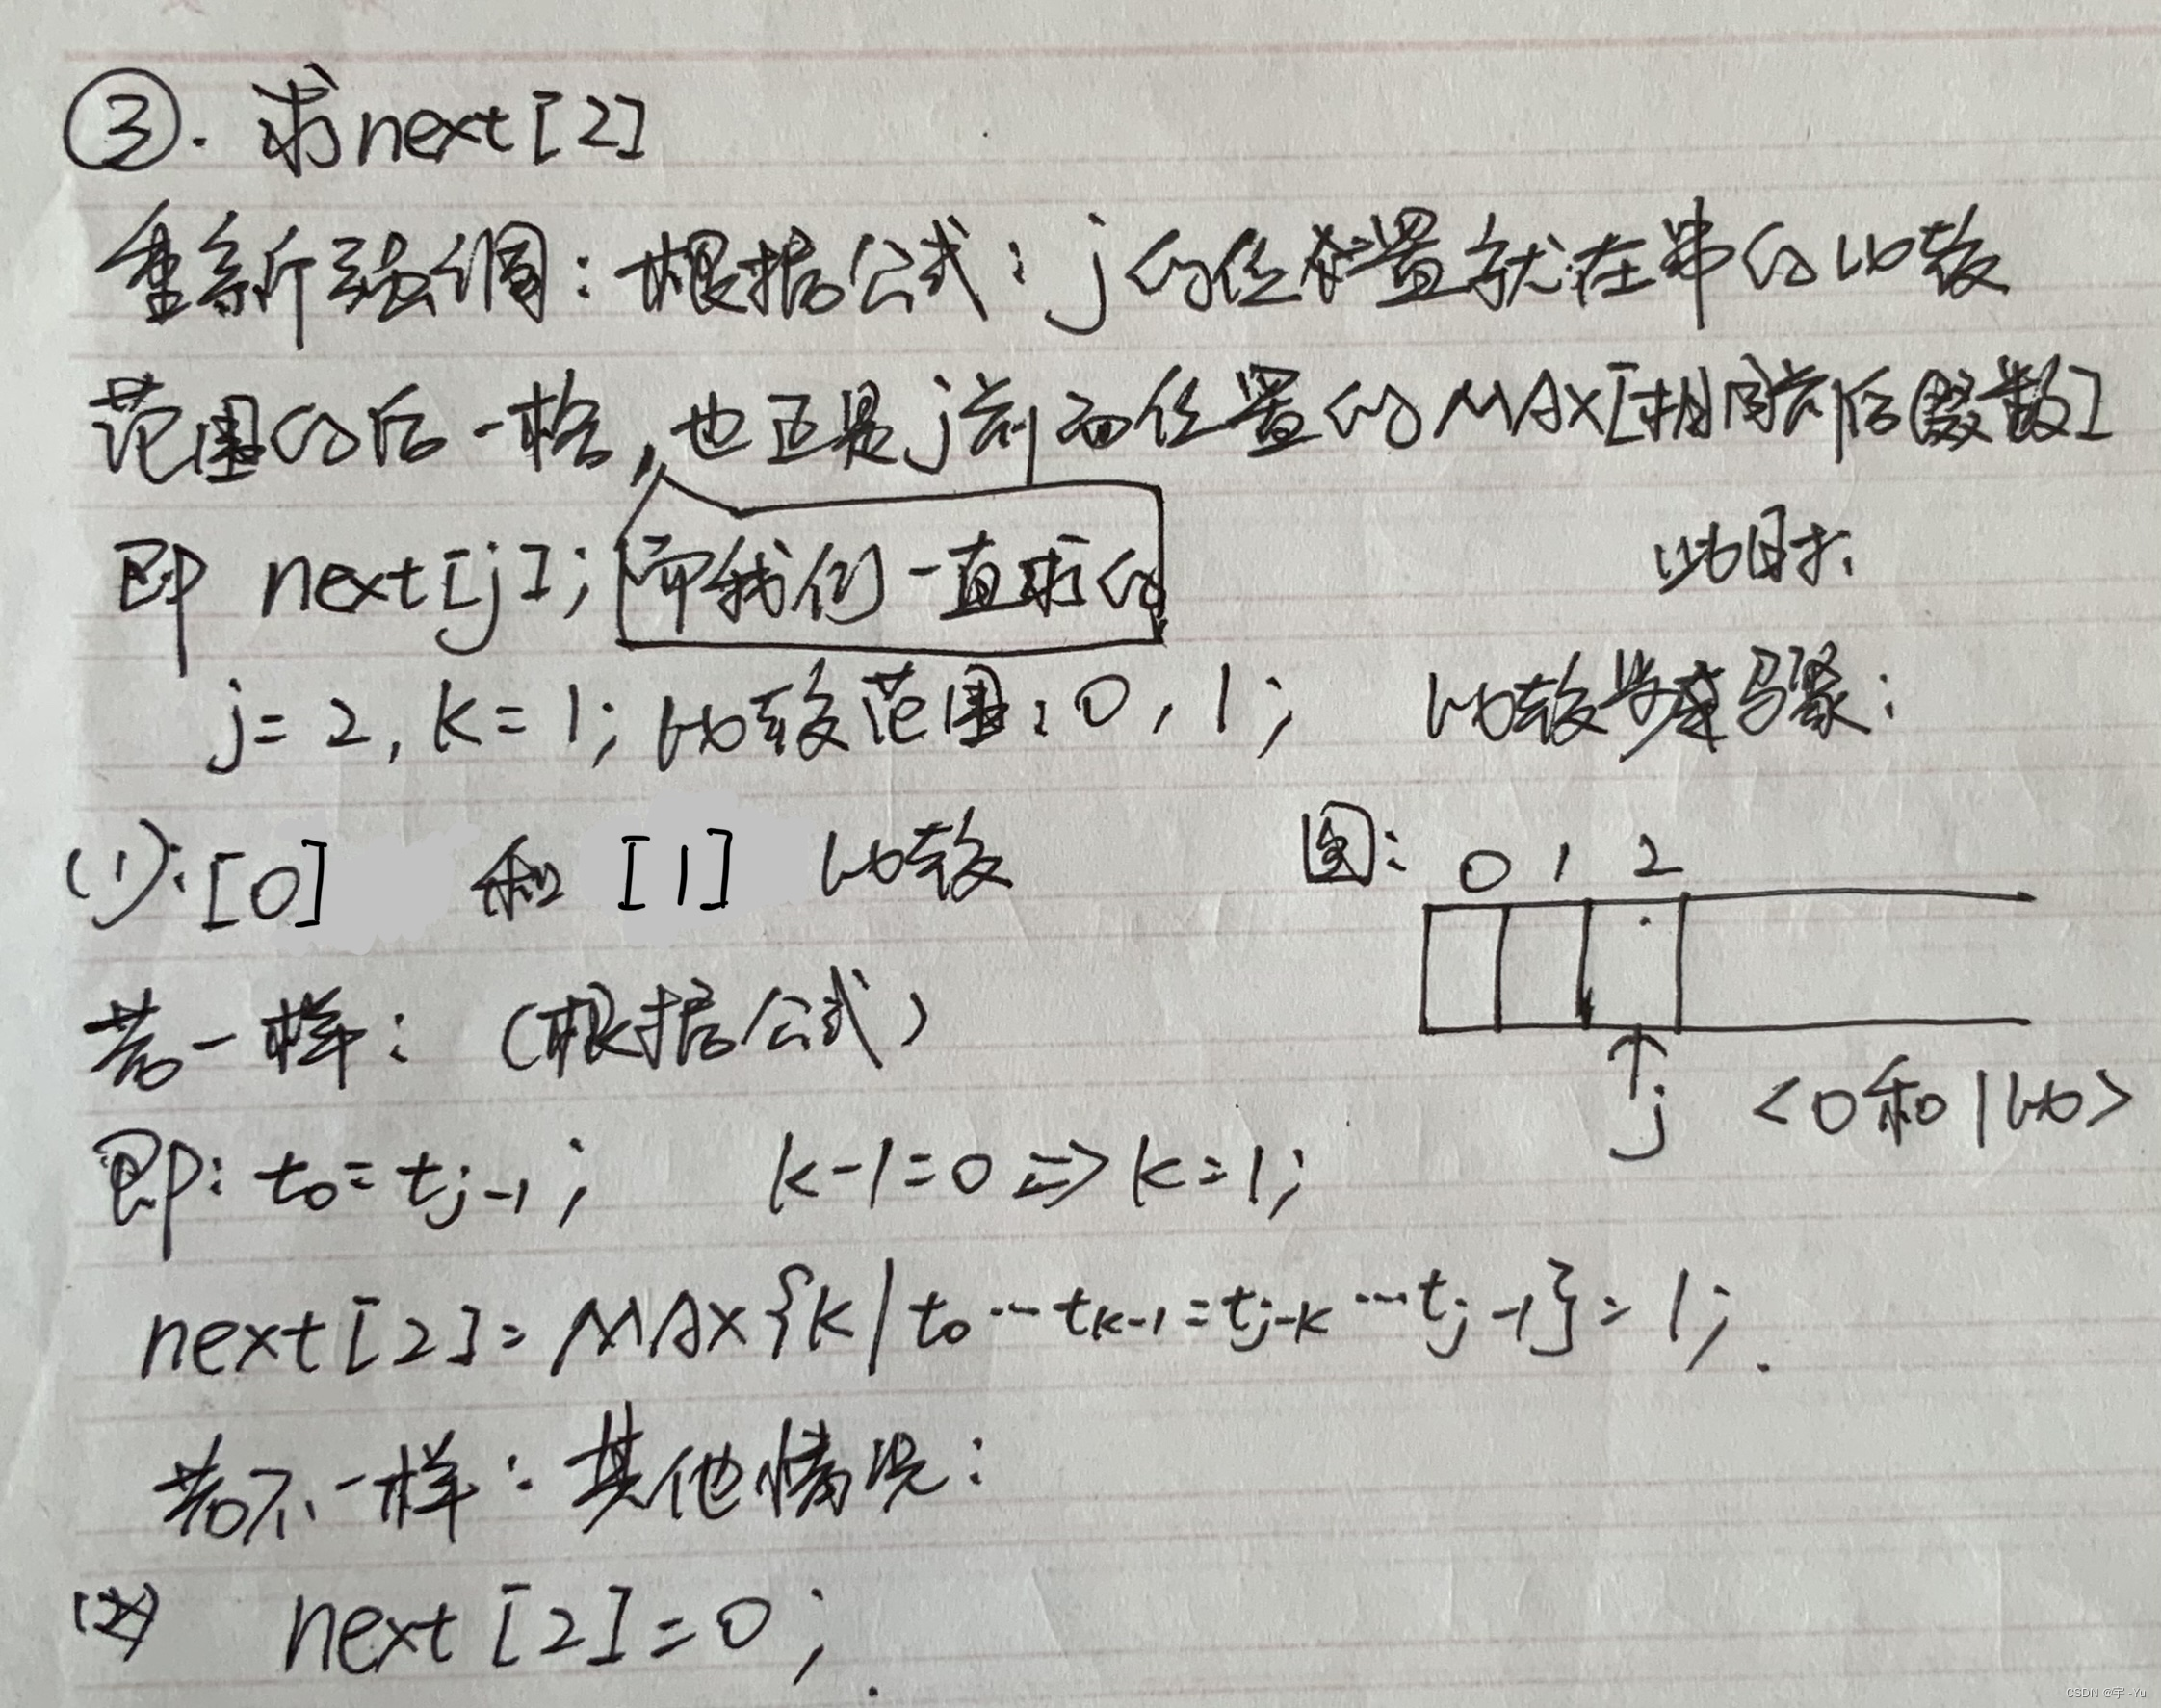 ③. 求next[2]
重新强调:根据公式:j的位置就在串的比较
范围的后一格,也正是j前面位置的MAX[相同前后缀数]
即 next[j]; 而我们一直求的
此时:
j=2, k=1; 比较范围:0,1; 比较步骤:
(1):[0] 和 [1] 比较
图: 0 1 2
若一样: (根据公式)
j <0和1比>
即: t₀=tⱼ₋₁; k-1=0 => k=1;
next[2]=MAX{k|t₀…tₖ₋₁=tⱼ₋ₖ…tⱼ₋₁}=1;
若不一样:其他情况:
(2) next[2]=0;
CSDN @宇-Yu